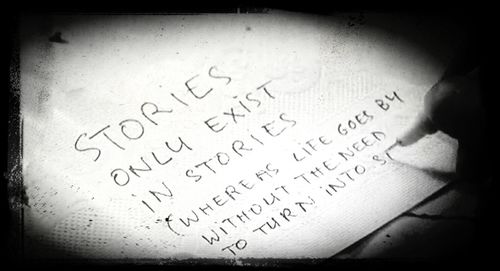 STORIES
ONLY EXIST
IN STORIES
(WHEREAS LIFE GOES BY
WITHOUT THE NEED
TO TURN INTO